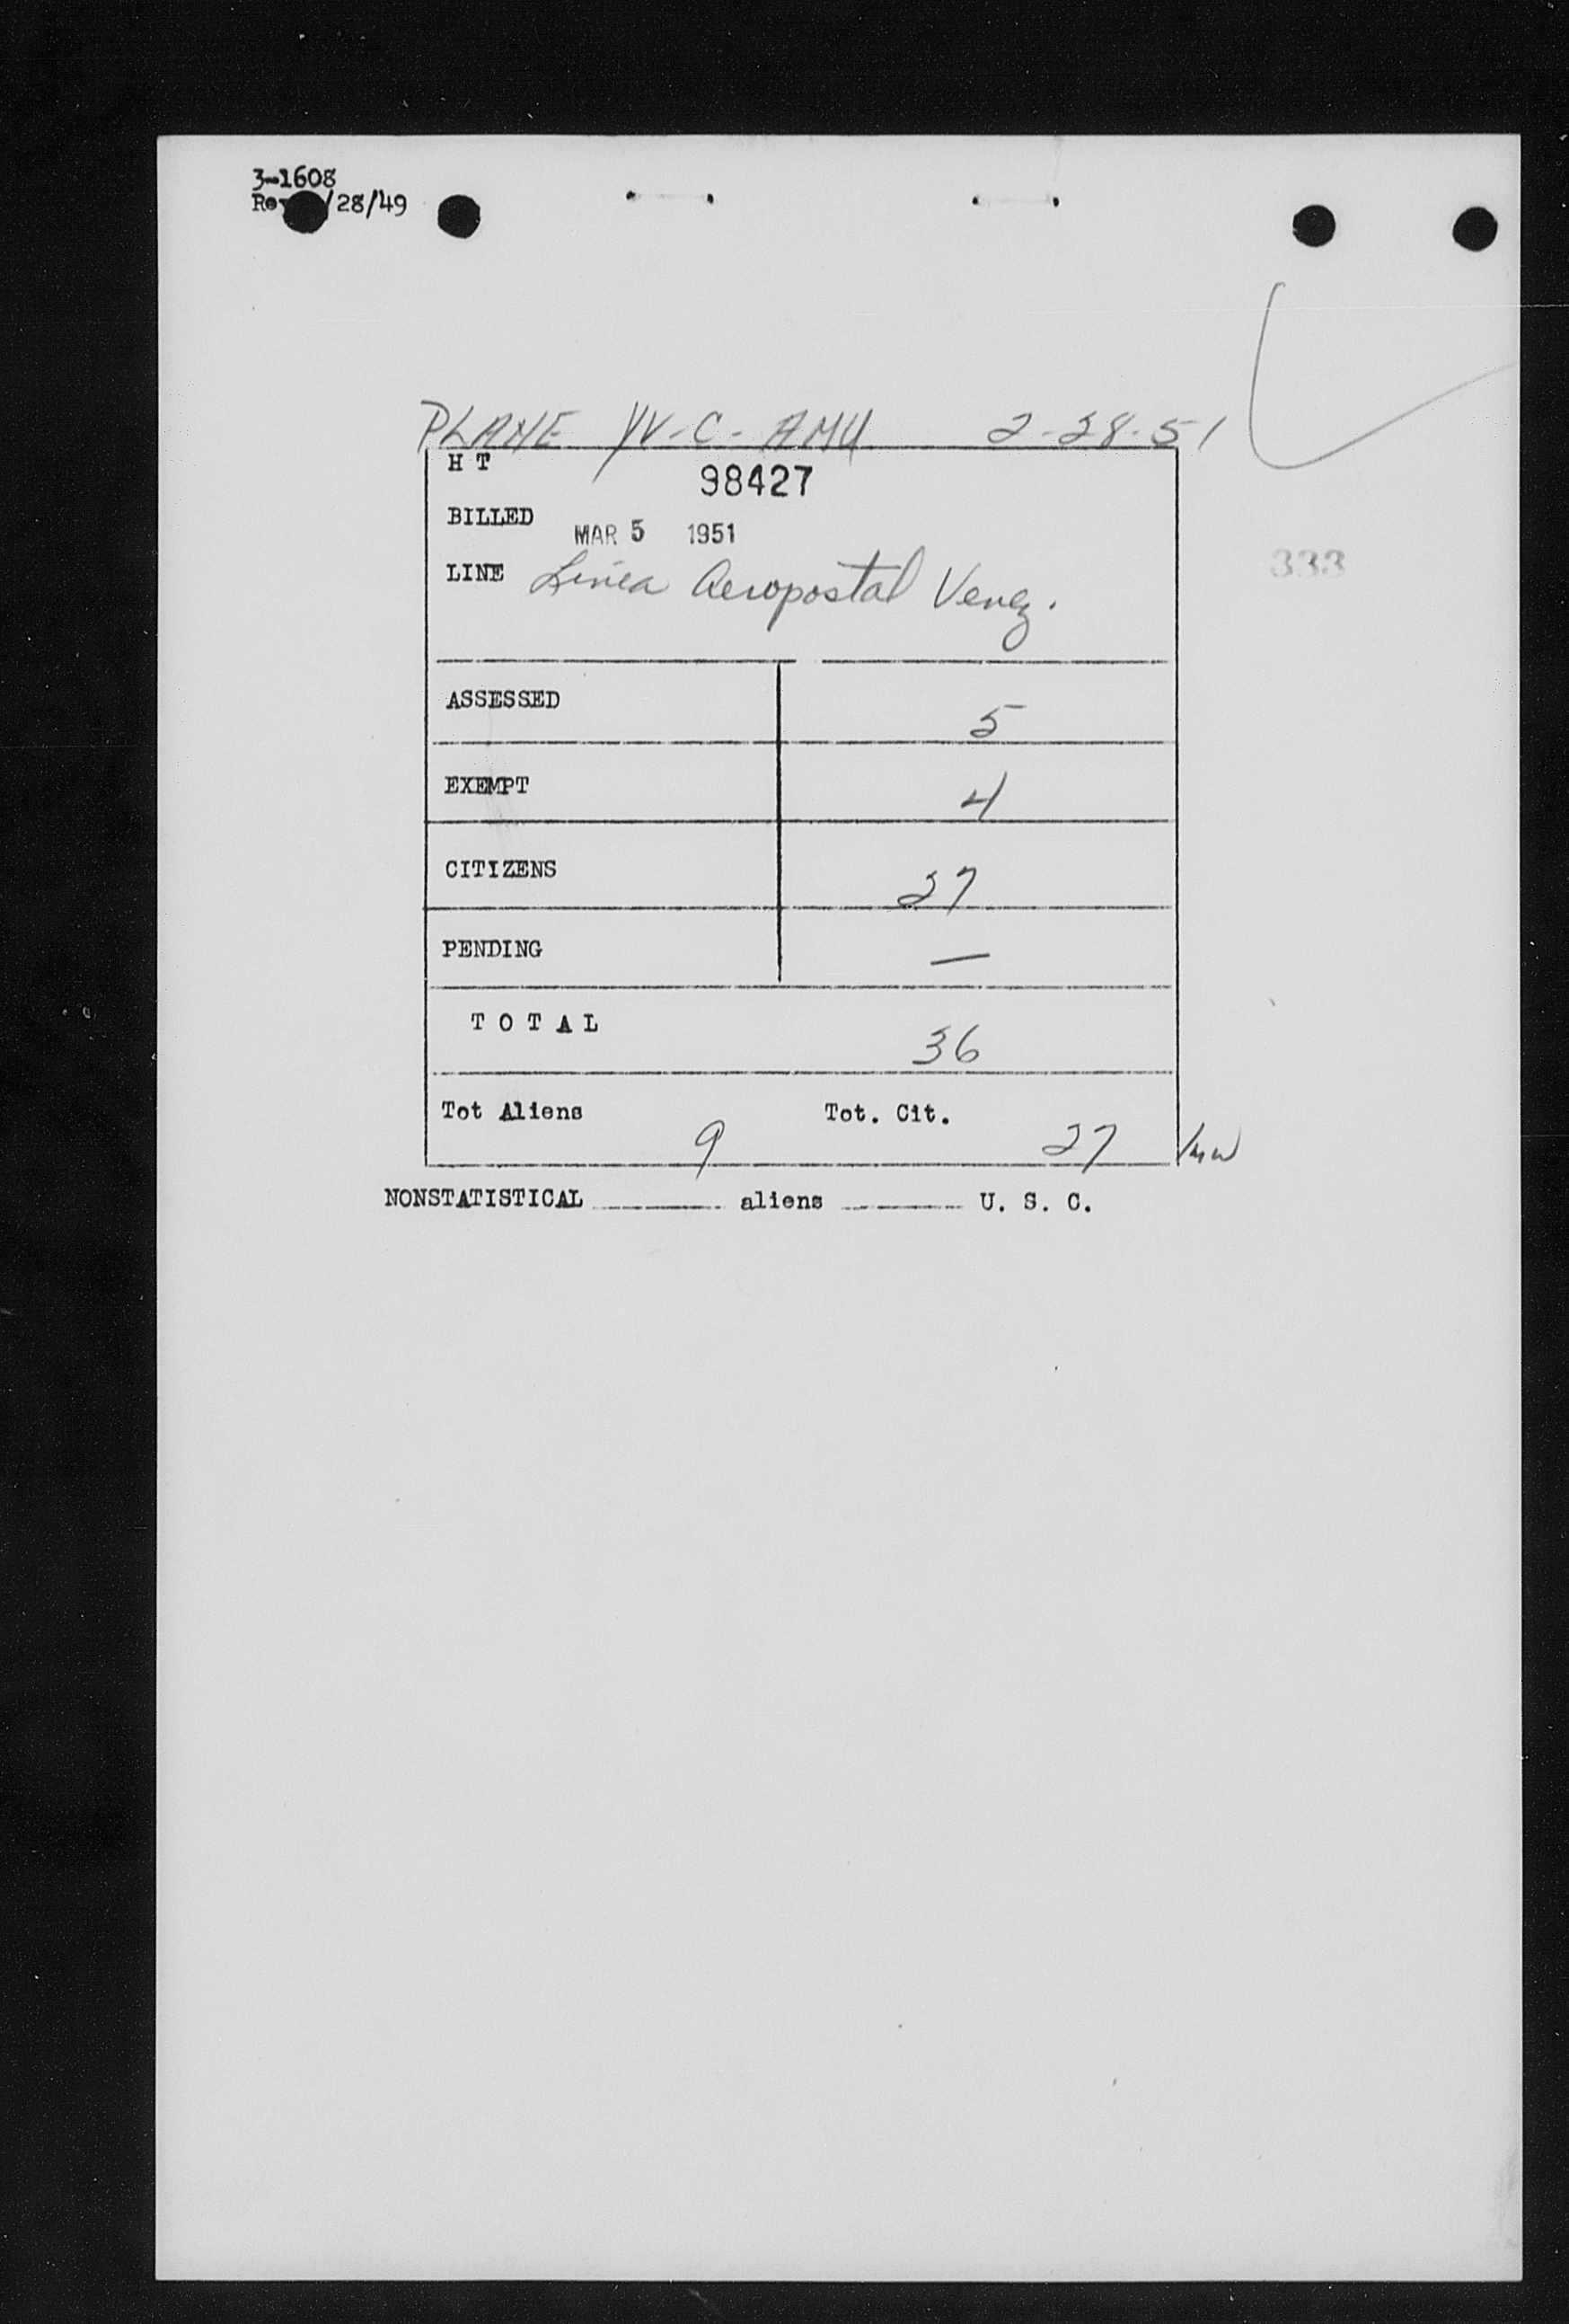 3-1608
/28/49
PLANE YV-C-AMU 2-28-51
H T 98427
BILLED MAR 5 1951
LINE Linea Aeropostal Venez.
333
ASSESSED 5
EXEMPT 4
CITIZENS 27
PENDING —
TOTAL 36
Tot Aliens 9 Tot. Cit. 27
NONSTATISTICAL aliens U. S. C.